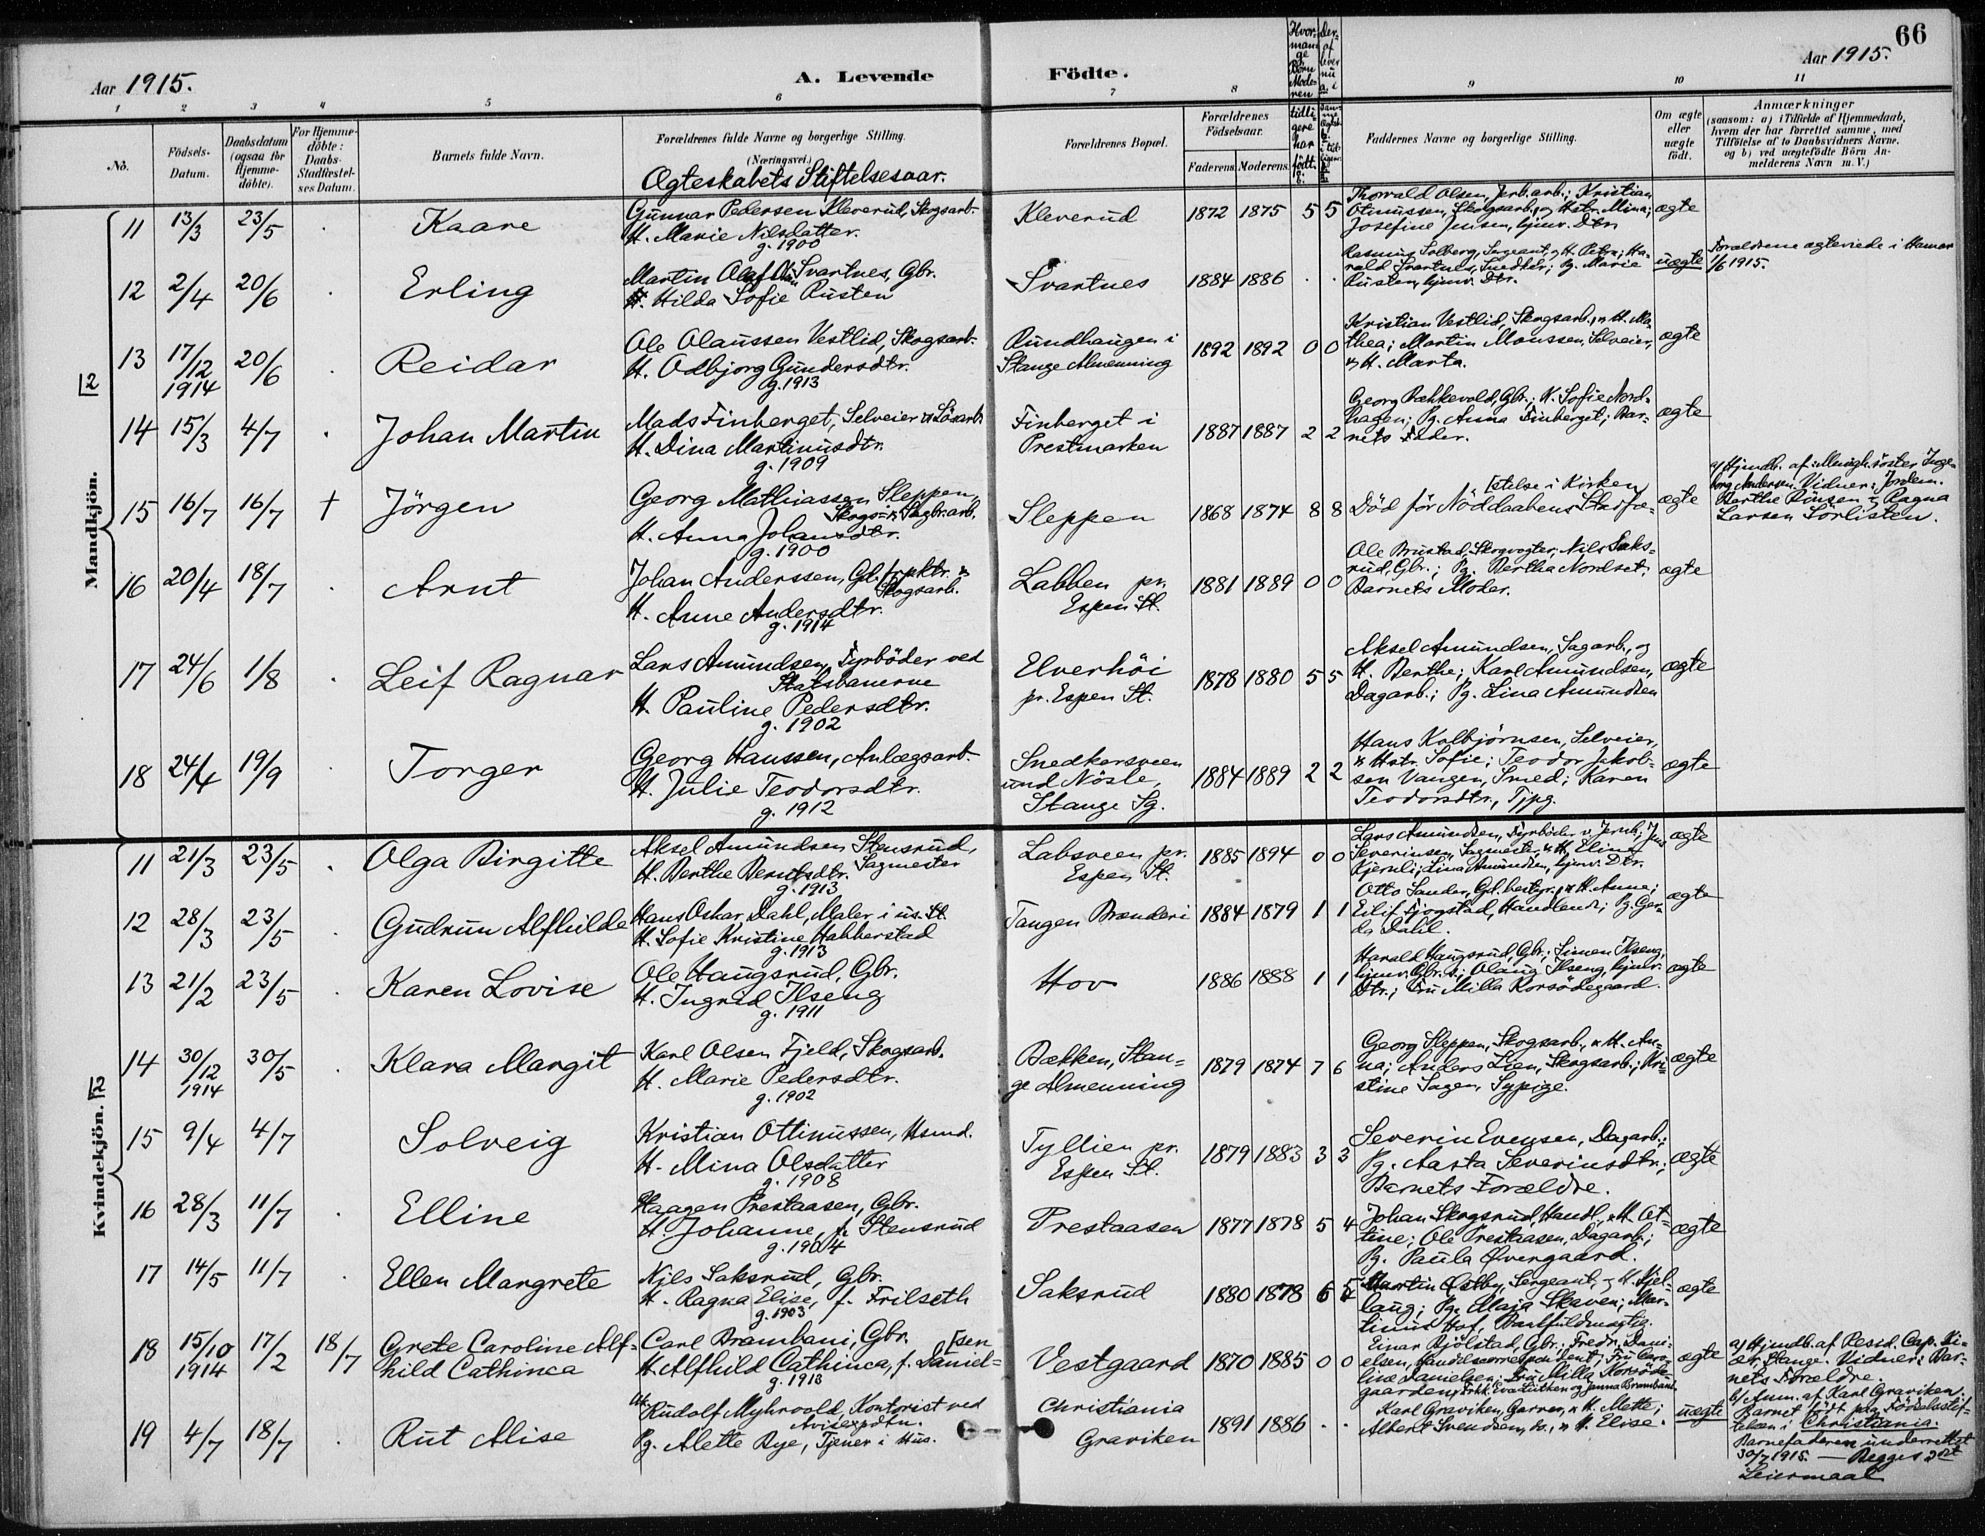 66
Aar 1915.
A. Levende
Födte.
Aar 1915.
1 2 3 4 5 6 7 8 9 10 11
No.
Födsels-
Datum.
Daabsdatum
(ogsaa for
Hjemme-
döbte).
For Hjemme-
döbte:
Daabs-
Stadfæstel-
ses Datum.
Barnets fulde Navn.
Forældrenes fulde Navne og borgerlige Stilling.
(Næringsvei.)
Ægteskabets Stiftelsesaar.
Forældrenes Bopæl.
Forældrenes
Födselsaar.
Faderens. Moderens.
Hvor-
man-
ge
Börn
Mode-
ren
tidli
gere
har
födt.
Der-
af
lever
nu
Faddernes Navne og borgerlige Stilling.
Om ægte
eller
uægte
födt.
Anmærkninger
(saasom: a) i Tilfælde af Hjemmedaab,
hvem der har forrettet samme, med
Tilföielse af to Daabsvidners Navne,
og b) ved uægtefödte Börn An-
melderens Navn m. V.)
Mandkjön.
12
11 13/3 23/5 . Kaare
Gunnar Pedersen Kleverud, Skogsarb.
H. Marie Nilsdatter.
g. 1900
Kleverud 1872 1875 5 5
Thorvald Olsen, Jrb.arb.; Kristian
Otinussen, Skogsarb., og Hstr. Mina;
Josefine Jensen, hjmv. Dtr.
ægte
12 2/4 20/6 . Erling
Martin Olaf Svartnes, Gbr.
H. Hilda Sofie Rusten
Svartnes 1884 1886 . .
Rasmus Solberg, Sergeant, og H. Petra; Ha-
rald Svartnes, Snedker; Pg. Marie
Rusten, hjmv. Dtr.
uægte
Forældrene ægteviede i Hamar
1/6 1915.
13 17/12 1914 20/6 . Reidar
Ole Olaussen Vestlid, Skogsarb.
H. Odbjorg Gundersdtr.
g. 1913
Rundhaugen i
Stange Almenning
1892 1892 0 0
Kristian Vestlid, Skogsarb., og H. Ma-
thea; Martin Monssen, Selveier,
og H. Marta.
ægte
14 15/3 4/7 . Johan Martin
Mads Finberget, Selveier og Lösarb.
H. Dina Martinusdtr.
g. 1909
Finberget i
Prestmarken
1887 1887 2 2
Georg Bækkevold, Gbr.; K. Sofie Nord-
hagen; Pg. Anna Finberget; Bar-
nets Fader.
ægte
15 16/7 16/7 † Jörgen
Georg Mathiassen Sleppen,
Skogs- og Sagbr.arb.
H. Anna Johansdtr.
g. 1900
Sleppen 1868 1874 8 8
Död för Nöddaabens Stadfæ-
stelse i Kirken
ægte
a) Hjmdb. af Menigh.söster Inge-
borg Andersen. Vidner: Jordem.
Berthe Rönsen og Ragna
Larsen Sörlisten.
16 20/4 18/7 . Arnt
Johan Anderssen, Gd.forpktr. og
Skogsarb.
H. Anne Andersdtr.
g. 1914
Labben pr.
Espen St.
1881 1889 0 0
Ole Brustad, Skogvogter, Nils Saks-
rud, Gbr.; Pg. Bertha Nordset;
Barnets Moder.
ægte
17 24/6 1/8 . Leif Ragnar
Lars Amundsen, Fyrböder ved
Statsbanerne
H. Pauline Pedersdtr.
g. 1902
Elverhöi
pr. Espen St.
1878 1880 5 5
Aksel Amundsen, Sagarb., og
H. Berthe; Karl Amundsen,
Dagarb.; Pg. Lina Amundsen
ægte
18 24/4 19/9 . Torger
Georg Hanssen, Anlægsarb.
H. Julie Teodorsdtr.
g. 1912
Snedkersveen
und Nösle,
Stange Sg.
1884 1889 2 2
Hans Kolbjörnsen, Selveier,
og Hstr. Sofie; Teodor Jakob-
sen Vangen, Smed; Karen
Teodorsdtr, Tjpg.
ægte
Kvindekjön.
12
11 21/3 23/5 . Olga Birgitte
Aksel Amundsen Stensrud,
Sagmester
H. Berthe Berntsdtr.
g. 1913
Labsveen pr.
Espen St.
1885 1894 0 0
Lars Amundsen, Fyrböder v. Jernb.; Jens
Severinsen, Sagmester, og H. Elina
Kjernli; Lina Amundsen, hjmv. Dtr.
ægte
12 28/3 23/5 . Gudrun Alfhilde
Hans Oskar Dahl, Maler i us. St.
H. Sofie Kristine Habberstad
g. 1913
Tangen Brænderi 1884 1879 1 1
Otto Sander, Gd.bestyr., og H. Anne;
Eilif Fjogstad, Handlende; Pg. Ger-
da Dahl.
ægte
13 21/2 23/5 . Karen Lovise
Ole Haugsrud, Gbr.
H. Ingrid Ilseng
g. 1911
Hov 1886 1888 1 1
Harald Haugsrud, Gbr.; Simen Ilseng,
hjmv. Gbr.s.; Olaug Ilseng, hjmv.
Dtr.; Fru Milla Korsödegaard.
ægte
14 30/12 1914 30/5 . Klara Margit
Karl Olsen Fjeld, Skogsarb.
H. Marie Pedersdtr.
g. 1902
Bækken, Stan-
ge Almenning
1879 1874 7 6
Georg Sleppen, Skogsarb., og H. An-
na; Anders Lien, Skogsarb.; Kri-
stine Sagen, Sypige.
ægte
15 9/4 4/7 Solveig
Kristian Ottinussen, Hsmd.
H. Mina Olsdatter
g. 1908
Tyllien pr.
Espen St.
1879 1883 3 3
Severin Evensen, Dagarb.;
Pg. Aasta Severinsdtr.;
Barnets Forældre.
ægte
16 28/3 11/7 . Elline
Haagen Prestaasen, Gbr.
H. Johanne, f. Stensrud
g. 1904
Prestaasen 1877 1878 5 4
Johan Skogsrud, Handl., og H. Ot-
tine; Ole Prestaasen, Dagarb.;
Pg. Paula Øvergaard.
ægte
17 14/5 11/7 . Ellen Margrete
Nils Saksrud, Gbr.
H. Ragna Elise, f. Frilseth
g. 1903
Saksrud 1880 1878 6 5
Martin Østby, Sergeant, og H. Hjel-
laug; Pg. Maja Skaven; Mar-
tinus Hof, Banefuldmægtig.
ægte
18 15/10 1914 17/2 18/7 Grete Caroline Alf-
hild Cathinca
Carl Brambani, Gbr.
H. Alfhild Cathinca, f. Daniel-
[sen
g. 1913
Vestgaard 1870 1885 0 0
Einar Bjölstad, Gbr.; Fredr. Dani-
elsen, Handelscorrespondent; Fru Caro-
line Danielsen; Fru Milla Korsöde-
gaarden; Frkk. Eva Lütken og Janna Brambani
ægte
a) Hjmdb. af Resid. Cap. Ki-
ær, Stange. Vidner: Bar-
nets Forældre.
19 4/7 18/7 . Rut Alise
Uk. Rudolf Myhrvold, Kontorist ved
Avisexpdtn.
Pg. Alette Bye, Tjener i Hus.
Christiania
Graviken
1891 1886 . .
Karl Graviken, Garver, og H. Mette;
Albert Svendsen, do., og H. Elise.
uægte
b) Anm. af Karl Graviken.
Barnet födt paa Födselsstif-
telsen i Christiania.
Barnefaderen underrettet
30/7 1915. — Begges 2det
Leiermaal